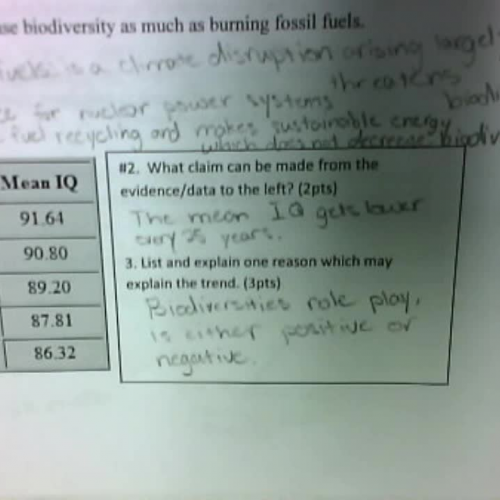 se biodiversity as much as burning fossil fuels.
fuels is a climate disruption arising largel
threatens
ce for nuclear power systems biodi
fuel recycling and makes sustainable energy
which does not decrease biodiv
Mean IQ
91.64
90.80
89.20
87.81
86.32
#2. What claim can be made from the
evidence/data to the left? (2pts)
The mean IQ gets lower
every 25 years.
3. List and explain one reason which may
explain the trend. (3pts)
Biodiversities role play,
is either positive or
negative.